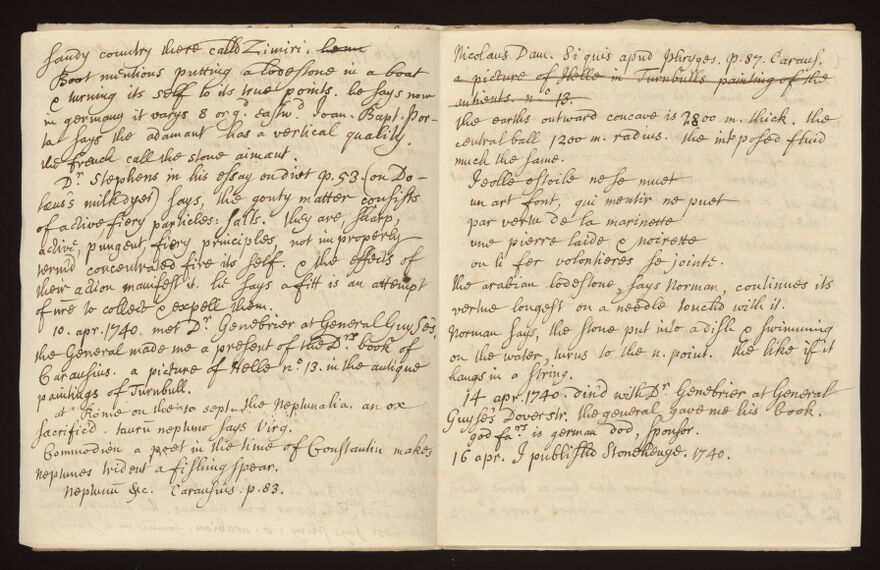 sandy country there calld Zimiri. hern
Boot mentions putting a lodestone in a boat
& turning its self to its true points. he says now
in germany it varys 8 or 9d. eastwd. Joan. Bapt. Por-
ta says the adamant has a vertical quality.
the french call the stone aimant.
Dr. Stephens in his essay on diet p. 53 (on Do-
læus's milk dyet) says, the gouty matter consists
of active fiery particles: salts. they are sharp,
active, pungent fiery principles, not improperly
term'd concentrated fire its self. & the effects of
their action manifest it. he says a fitt is an attempt
of nre to collect & expell them.
10. apr. 1740. met Dr. Genebrier at General Guyse's,
the General made me a present of the Drs. book of
Carausius. a picture of Helle no. 13. in the antique
paintings of Turnbull.
at Rome on the 10 sept. the Neptunalia. an ox
sacrificd. taurū neptuno says Virg.
Commodien a poet in the time of Constantin makes
neptunes trident a fishing spear.
Neptunū &c. Carausius. p. 83.
Nicolaus Dam. Si quis apud phryges. p. 87. Caraus.
a picture of Helle in Turnbulls painting of the
antients. no. 13.
the earths outward concave is 2800 m. thick. the
central ball 1200 m. radius. the interposed fluid
much the same.
Icelle estoile ne se muet
un art font, qui mentir ne puet
par vertu de la marinette
une pierre laide & noirette
ou li fer volontieres se jointe.
the arabian lodestone, says Norman, continues its
vertue longest on a needle touch'd with it.
Norman says, the stone put into a dish & swimming
on the water, turns to the n. point. the like if it
hangs in a string.
14 apr. 1740. din'd with Dr. Genebrier at General
Guyse's Dover str. the general gave me his book.
god fars. is german dod, sponsor.
16 apr. I publish'd Stonehenge. 1740.